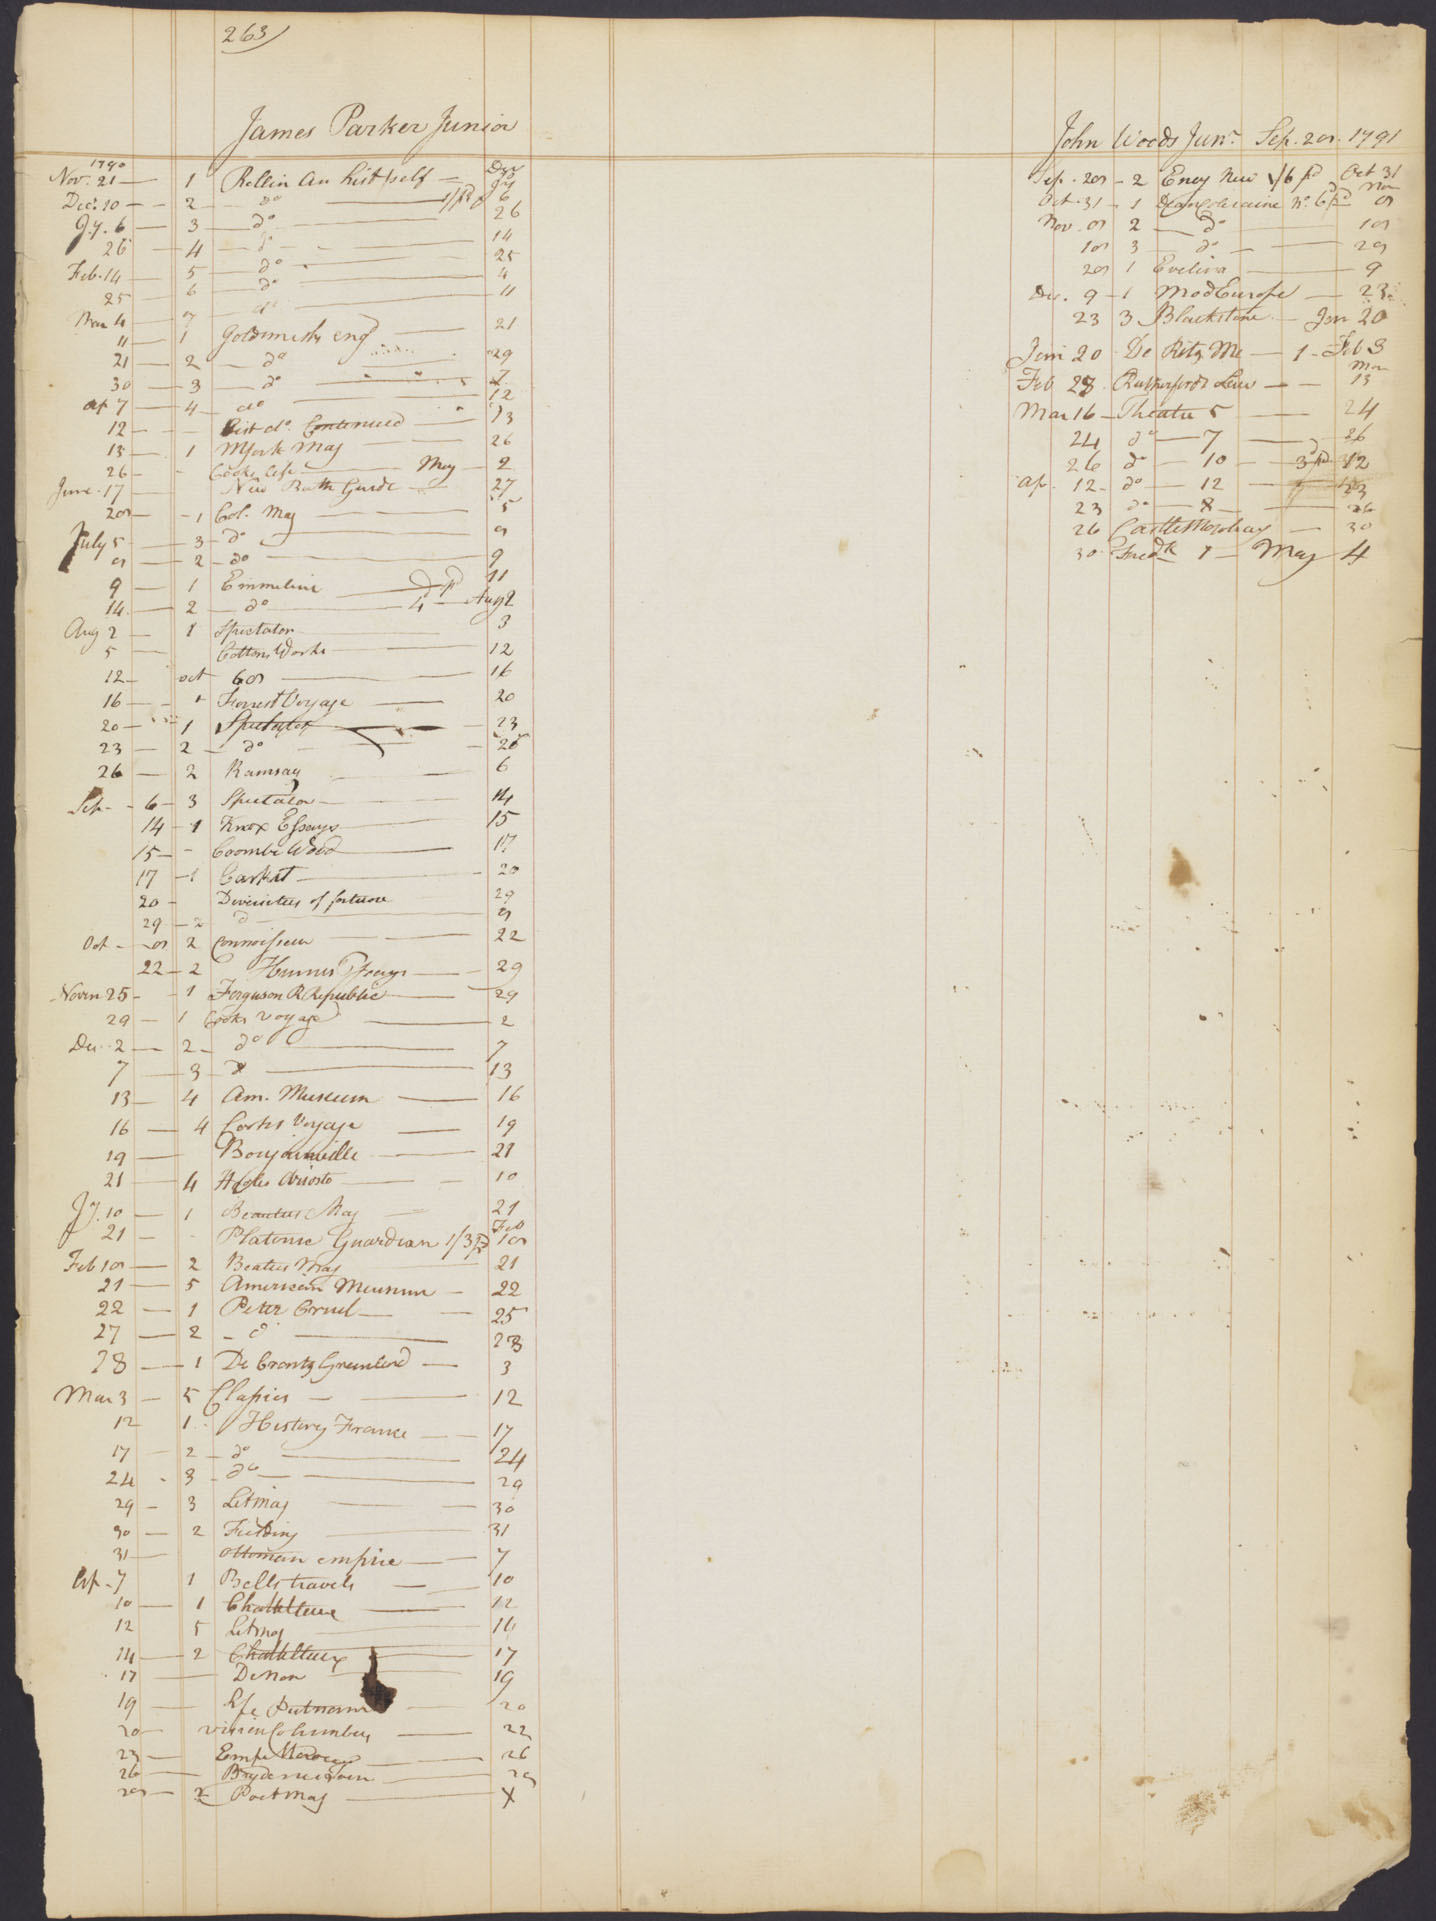 263
James Parker Junior
1790
Nov. 21 — 1 Rollin An hist self — Decr
Decr. 10 — 2 — do — 1/pd Jy 6
Jy. 6 — 3 — do — 26
26 — 4 — do — 14
Feb. 14 — 5 — do — 25
25 — 6 — do — 4
Mar 4 — 7 — do — 11
11 — 1 Goldsmiths eng — 21
21 — 2 — do — 29
30 — 3 — do — 7
ap 7 — 4 — do — 12
12 — Hist do. Continued — 13
13 — 1 Myork Mag — 26
26 - Cooks life — May — 2
June. 17 — New Bath Guide — 27
28 — 1 Col. Mag — 5
July 5 — 3 — do — 8
8 — 2 — do — 9
9 — 1 Emmeline — 11
14 — 2 — do — 4 — Aug 2
Aug 2 — 1 Spectator — 3
5 — Cottons Works — 12
12 — oct 68 — 16
16 — 1 Forrest Voyage — 20
20 — 1 Spectator — 23
23 — 2 — do — 26
26 — 2 Ramsay — 6
Sep. - 6 — 3 Spectator — 14
14 — 1 Knox Essays — 15
15 — Coombe Wood — 17
17 — 1 Casket — 20
20 — Diversities of fortune — 29
29 — 2 d — 8
Oct — 8 2 Connoisseur — 22
22 — 2 Humes Essays — 29
Novem 25 — 1 Ferguson R Republic — 29
29 — 1 Cooks voyage — 2
Dec. 2 — 2 — do — 7
7 — 3 — do — 13
13 — 4 Am. Museum — 16
16 — 4 Cooks Voyage — 19
19 — Bougainville — 21
21 — 4 Hooles Ariosto — 10
Jy. 10 — 1 Beauties Mag — 21
21 — Platonic Guardian 1/3 pd Feb 18
Feb 18 — 2 Beaties Mag — 21
21 — 5 American Museum — 22
22 — 1 Peter Cruel — 25
27 — 2 — do — 28
28 — 1 De Crantz Greenland — 3
Mar 3 — 5 Classics — 12
12 1 - History France — 17
17 — 2 — do — 24
24 - 3 — do — 29
29 — 3 Litmag — 30
30 — 2 Fielding — 31
31 — Ottoman empire — 7
Ap. 7 1 Bells travels — 10
10 — 1 — 12
12 5 Litmag — 16
14 — 2 — 17
17 — Denon — 19
19 — life Putnam — 20
20 — vision Columbus — 22
23 — Empr Morocco — 26
26 — — 28
28 — 2 Poet Mag — X
John Woods Junr. Sep. 28. 1791
Sep. 28 — 2 Ency 1/6 pd Oct 31
Oct. 31 — 1 Dean Coleraine no. 6 pd Nov 8
Nov. 8 2 — do — 18
18 3 — do — 28
28 1 Evelina — 9
Dec. 9 — 1 Mod Europe — 23
23 3 Blackstone — Jan 20
Jan 20 - De Retz Me — 1 - Feb 3
Feb 28 - Rutherford Law — Mar 13
Mar 16 — Theatre 5 — 24
24 do — 7 — 26
26 do — 10 — 3 pd 12
ap. 12 - do — 12 — 23
23 do — 8 — 26
26 Castle Mowbray — 30
30 Fredk 1 — May 4